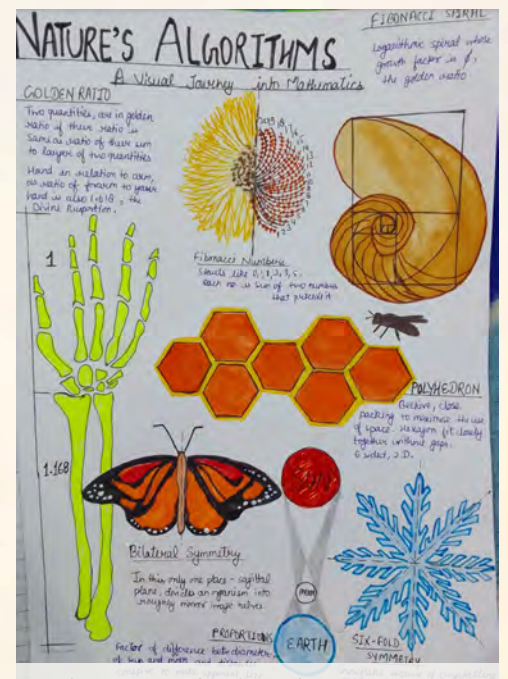 NATURE'S ALGORITHMS
A Visual Journey into Mathematics
FIBONACCI SPIRAL
Logarithmic spiral whose
growth factor is φ,
the golden ratio
GOLDEN RATIO
Two quantities, are in golden
ratio if their ratio is
same as ratio of their sum
to larger of two quantities
Hand in relation to arm,
as ratio of forearm to your
hand is also 1.618, the
Divine Proportion.
1
1.168
Fibonacci Numbers
Starts like 0, 1, 1, 2, 3, 5.
Each no is sum of two numbers
that precede it
POLYHEDRON
Beehive, close
packing to maximise the use
of space. Hexagon fit closely
together without gaps.
6 sided, 2D.
Bilateral Symmetry
In this only one plane - sagittal
plane, divides an organism into
roughly mirror image halves.
SUN
MOON
EARTH
PROPORTIONS
Factor of difference betn diameter
of sun and moon and
SIX-FOLD
SYMMETRY